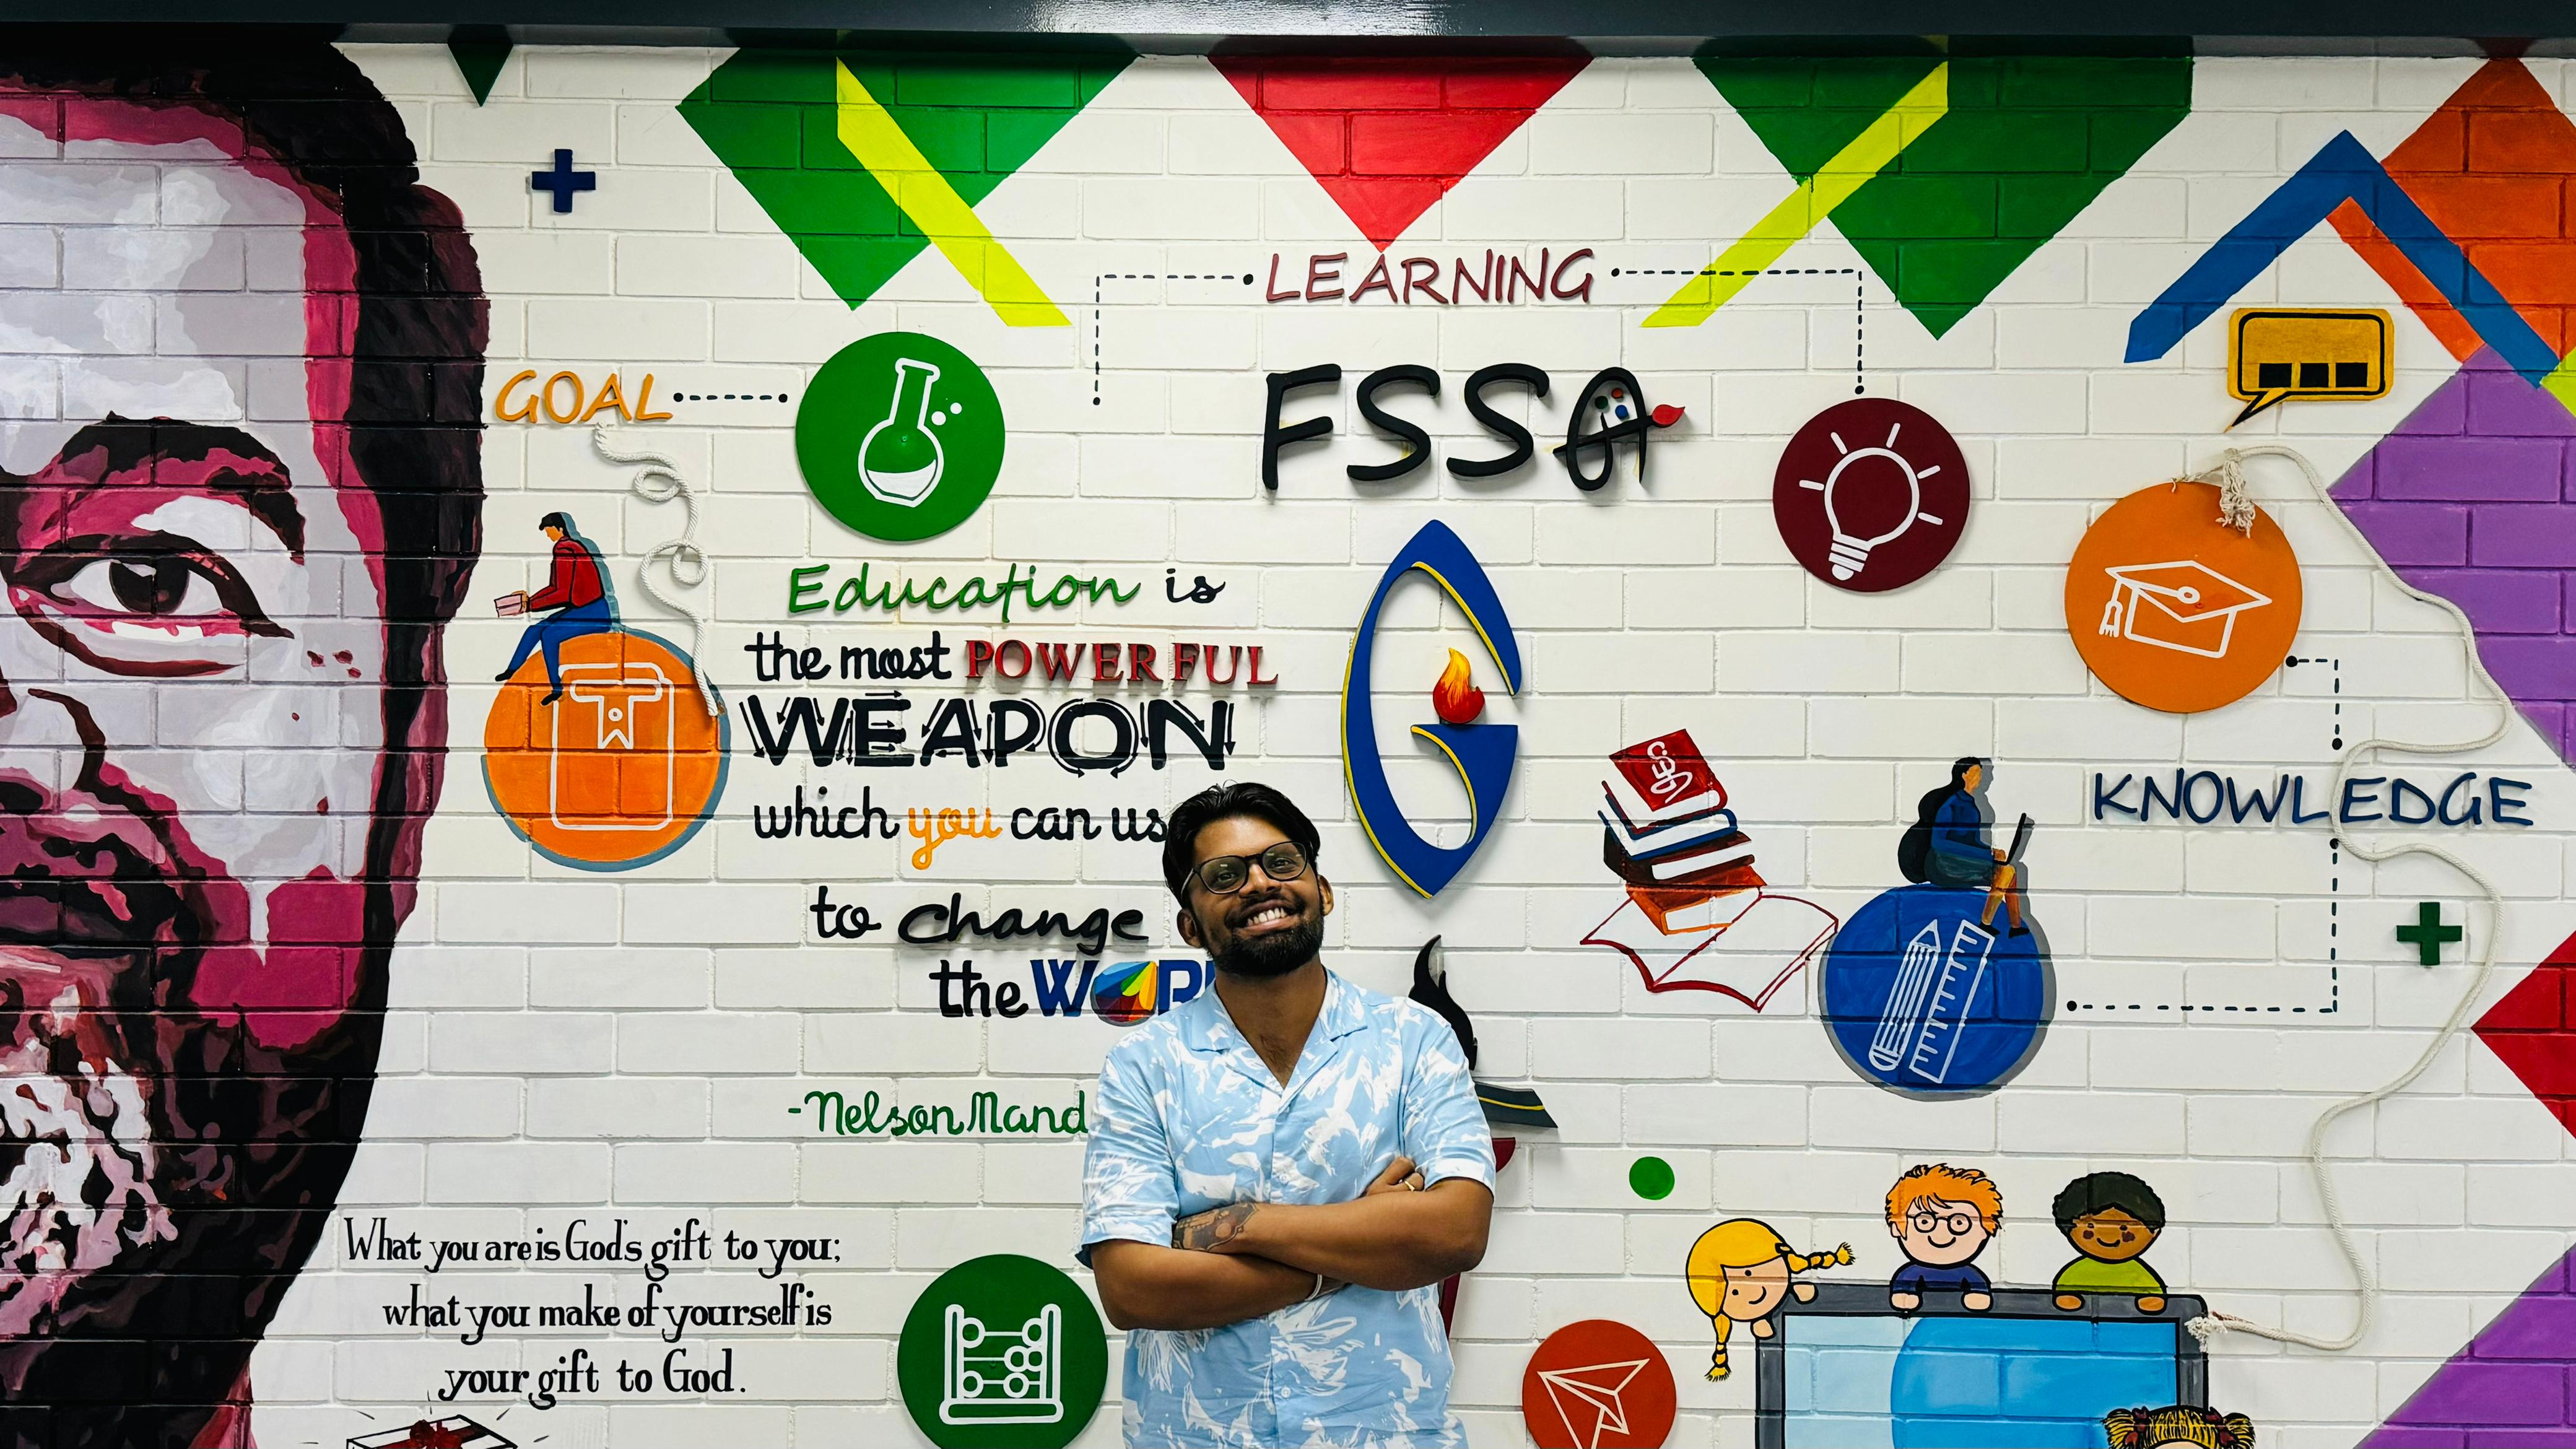 LEARNING
GOAL
FSSA
Education is
the most POWERFUL
WEAPON
which you can us
to change
the WOR
-Nelson Mand
G
KNOWLEDGE
What you are is God's gift to you;
what you make of yourself is
your gift to God.